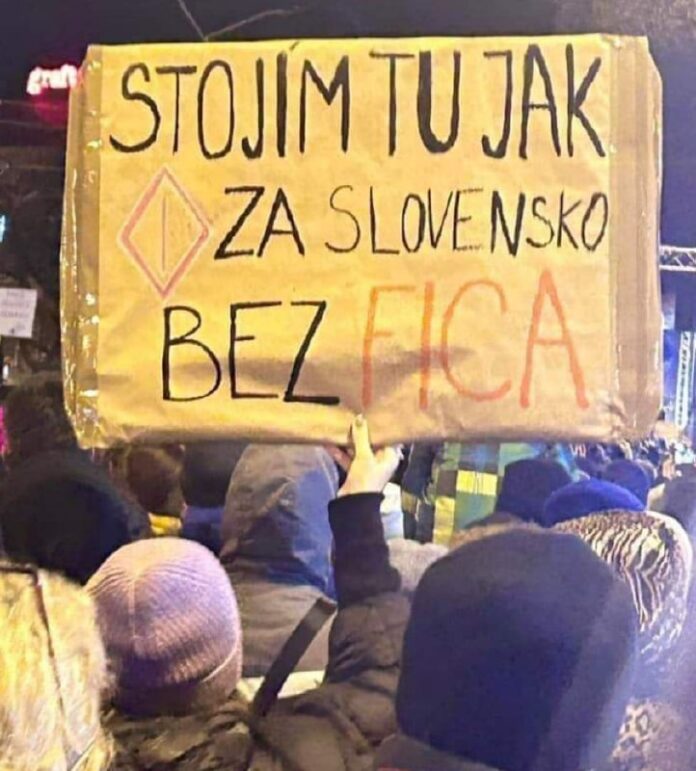 STOJÍM TU JAK
ZA SLOVENSKO
BEZ FICA